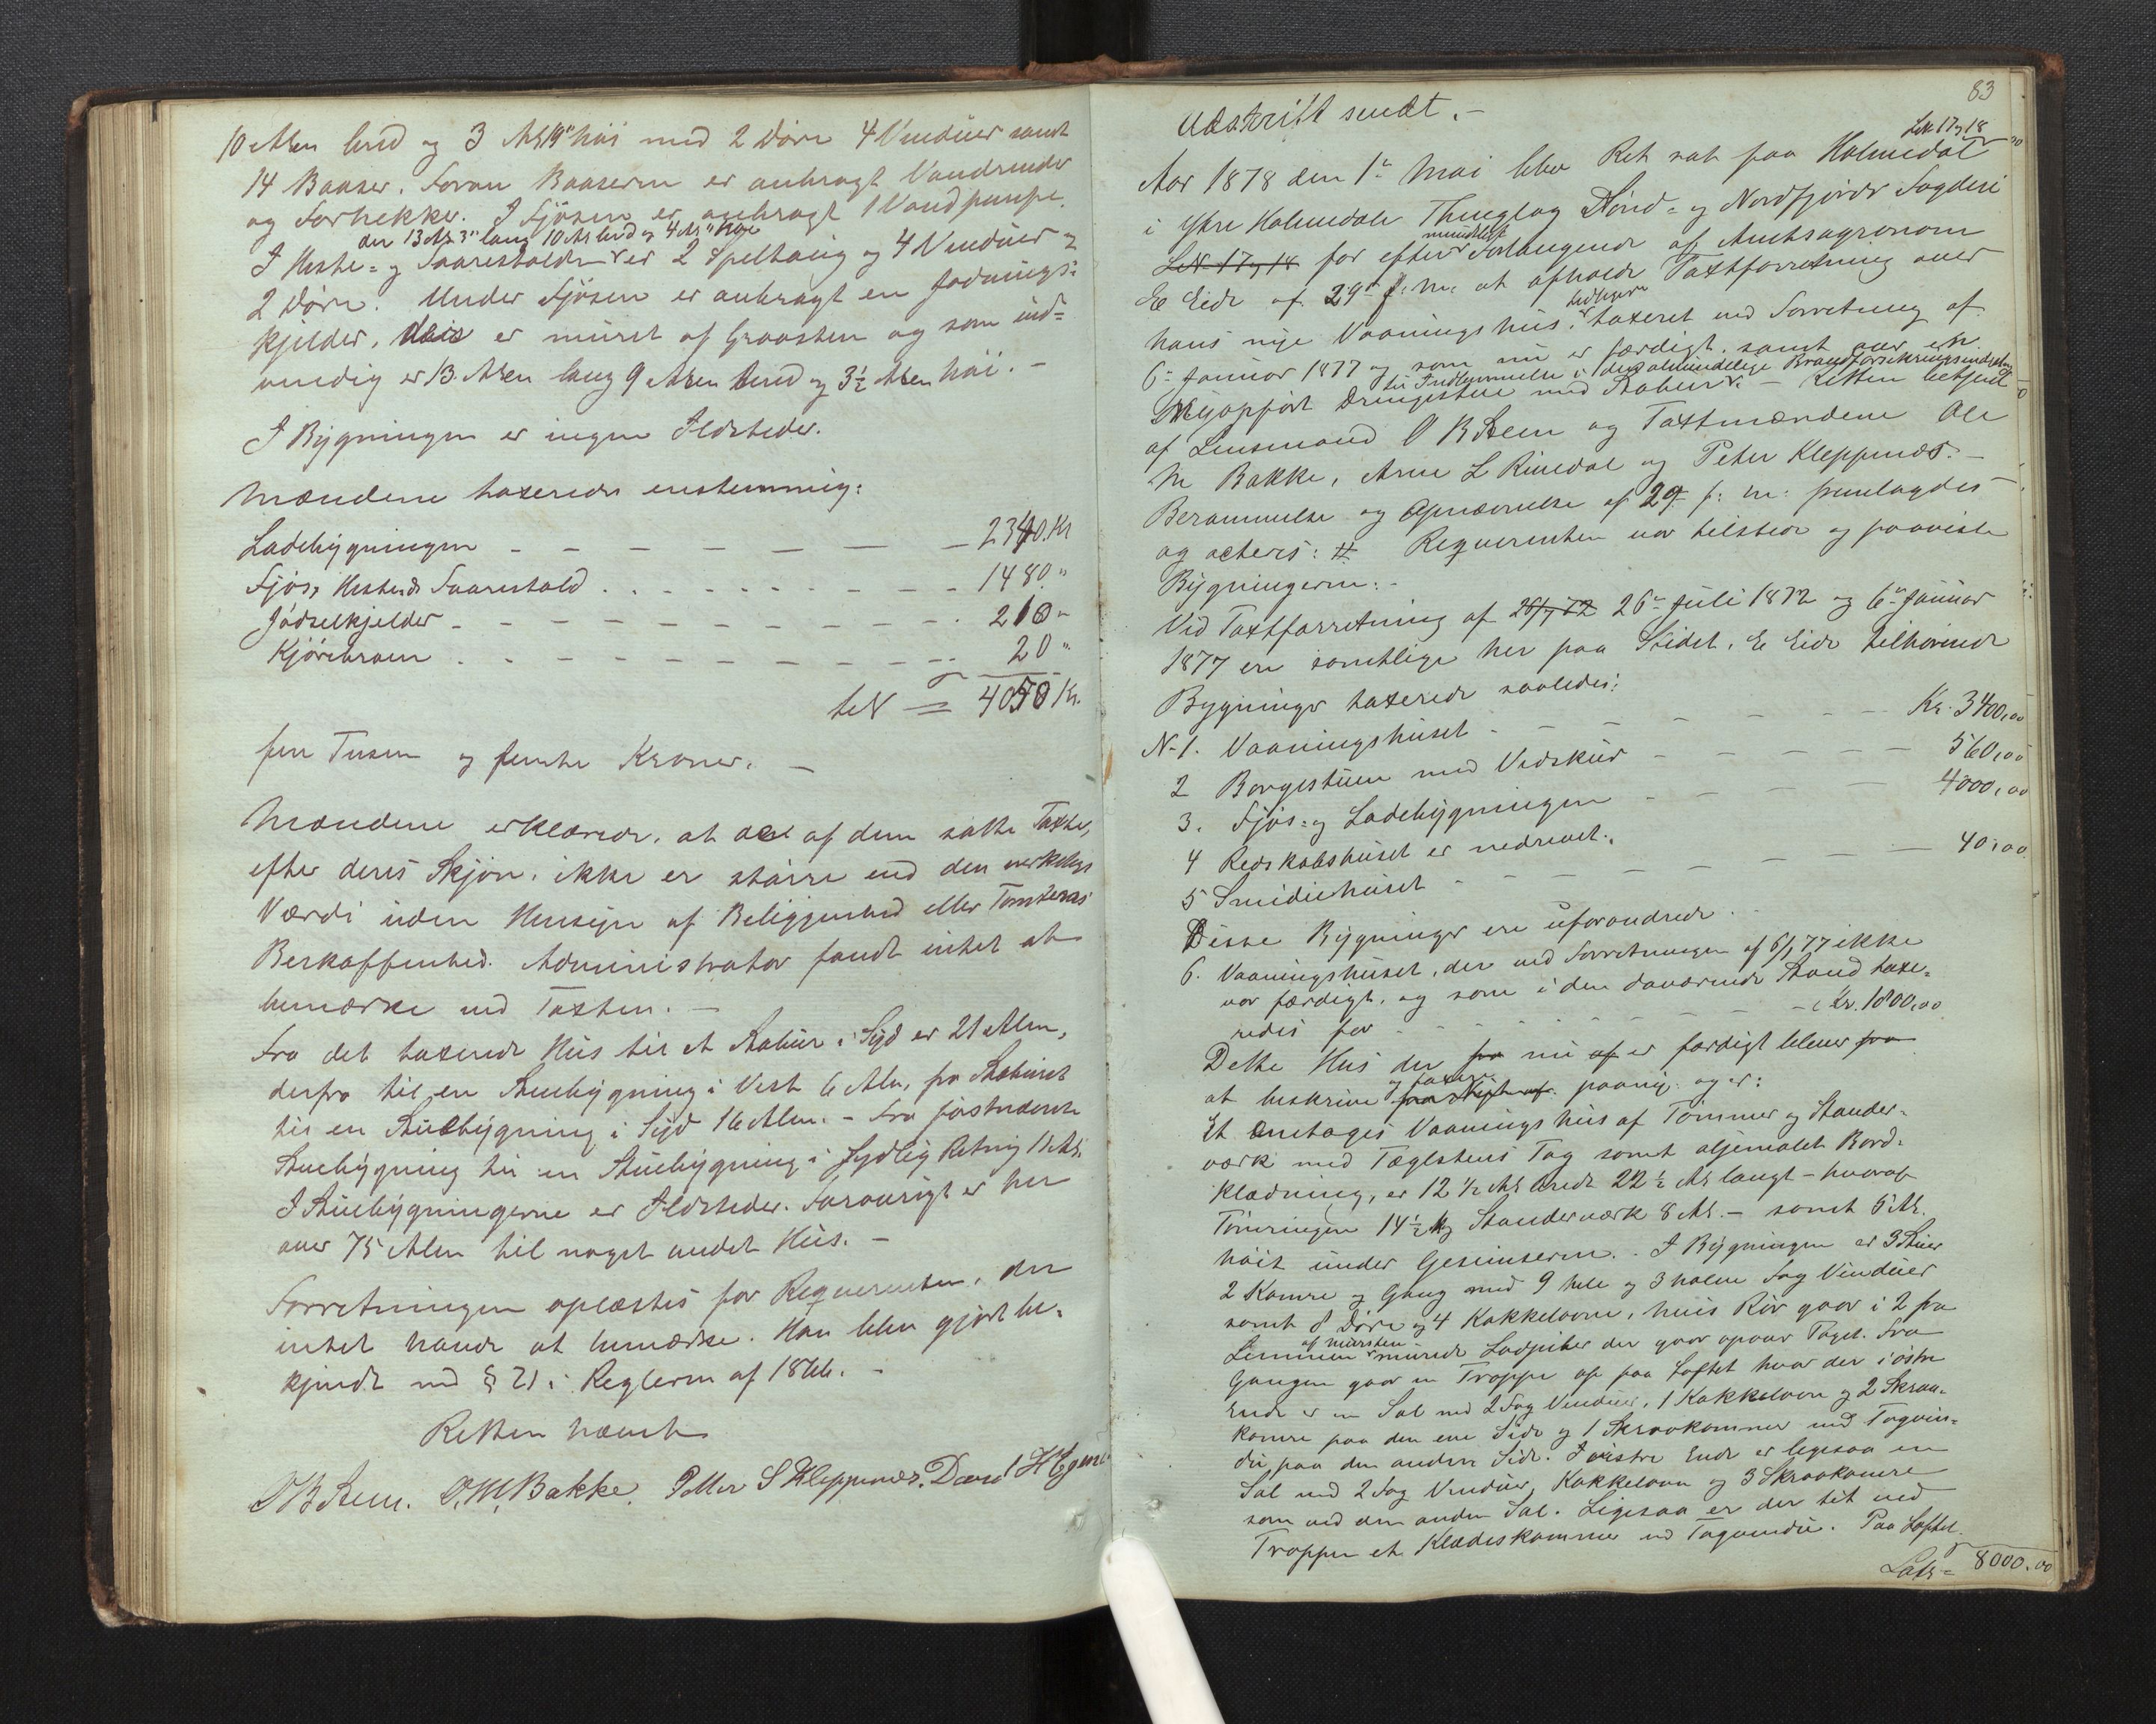 10 Alen bred og 3 Al 19" höi med 2 Döre 4 Vinduer samt
14 Baaser. Foran Baaserne er anbragt Vandrender
og Forhekker. I Fjösen er anbragt 1 Vandpumpe.
der 13 Al 3" lang 10 Al bred og 4 Al " höi
I Heste- og Faarestalden er 2 Speltaug og 4 Vinduer og
2 Döre. Under Fjösen er anbragt en Gjödnings-
kjelder, der er muret af Graasten og som ind-
vendig er 13 Alen lang 9 Alen bred og 3½ Alen höi. -
I Bygningen er ingen Ildsteder.
Mændene taxerede enstemmig:
Ladebygningen - - - - - - 2340. Kr
Fjös, Heste & Faarestald . . . - - - - 1480 "
Gjödselkjelder - - - - - - - - 210 "
Kjörebroen . . - - - - - - - 20 "
til = 4050 Kr.
fire Tusen og femti Kroner. -
Mændene erklærede, at den af dem satte Taxt,
efter deres Skjön, ikke er större end den virkelige
Værdi uden Hensyn af Beliggenhed eller Tomternes
Beskaffenhed. Administrator fandt intet at
bemærke ved Taxten. -
Fra det taxerede Hus til et Stabur i Syd er 21 Alen,
derfra til en Stuebygning i Vest 6 Alen, fra Staburet
til en Stuebygning i Syd 16 Alen. - Fra förstnævnte
Stuebygning til en Stuebygning i Sydlig Retning 11 Al.
I Stuebygningerne er Ildsteder. Forövrigt er her
over 75 Alen til noget andet Hus. -
Forretningen oplæstes for Reqvirenten, der
intet havde at bemærke. Han blev gjort be-
kjendt med § 21 i Reglerne af 1866. -
Retten hævet
O B Steen. O. M. Bakke. Petter S Kleppenes. David H
83
Udskrift sendt. -
Lit 17 og 18
Aar 1878 den 1ste Mai blev Ret sat paa Holmedal
i Ytre Holmedals Thinglag Sönd- og Nordfjords Fogderi
mundtlig
Lit 17 og 18 for efter Forlangende af Amtsagronom
E Eide af 29de f: m: at afholde Taxtforretning over
tidligere
hans nye Vaaningshus, taxeret ved Forretning af
6te Januar 1877 og som nu er færdigt, samt over en
til Indlemmelse i den almindelige Brandforsikringsindretning
Nyopfört Drengestue med Stabur. - Retten betjent
af Lensmand O B Steen og Taxtmændene Ole
M Bakke, Arne L Rivedal og Peter Kleppenes. -
Berammelse og Opnævnelse af 29 f: m: fremlagdes
og acteres: # Reqvirenten var tilstede og paaviste
Bygningerne. -
Ved Taxtforretning af 26/7 72 26de Juli 1872 og 6te Januar
1877 ere samtlige her paa Stedet, E Eide tilhörende
Bygninger taxerede saaledes:
N- 1. Vaaningshuset - - - - - - - Kr. 3400,00
2 Borgestuen med Vedskur - - - - - 560,00
3. Fjös- og Ladebygningen - - - - - 4000,00
4 Redskabshuset er nedrevet.
5 Smidiehuset - - - - - - - 40,00
Disse Bygninger ere uforandrede.
6. Vaaningshuset, der ved Forretningen af 6/1 77 ikke
var færdigt, og som i den daværende Stand taxe-
redes for - - - - - - - - - Kr. 1800,00
Dette Hus der fra nu af er færdigt blever fra
og taxere
at beskrive paany og er:
Et enetages Vaaningshus af Tömmer og Stander-
værk med Taglstens Tag samt oljemalet Bord-
klædning, er 12 ½ Al bredt 22 ½ Al langt - hvoraf
Tömringen 14 ½ og Standerværk 8 Al. - samt 6 Al.
höit under Gesimserne. - I Bygningen er 3 Stuer
2 Kamre og Gang med 9 hele og 3 halve Fag Vinduer
samt 8 Döre og 4 Kakkelovne, hvis Rör gaar i 2 fra
af mursten
murede Lodpiber der gaar opover Taget. Fra
Gangen gaar en Troppe op paa Loftet hvor der i östre
Ende er en Sal med 2 Fag Vinduer, 1 Kakkelovn og 2 Skraa-
kamre paa den ene Side og 1 Skraakammer med Tagvin-
du paa den anden Side. I vestre Ende er ligesaa en
Sal med 2 Fag Vinduer, Kakkelovn og 3 Skraakamre
som ved den anden Sal. Ligesaa er der tet ved
Troppen et Klædeskammer med Tagvindu. Paa Loftet
Lats = 8000.00